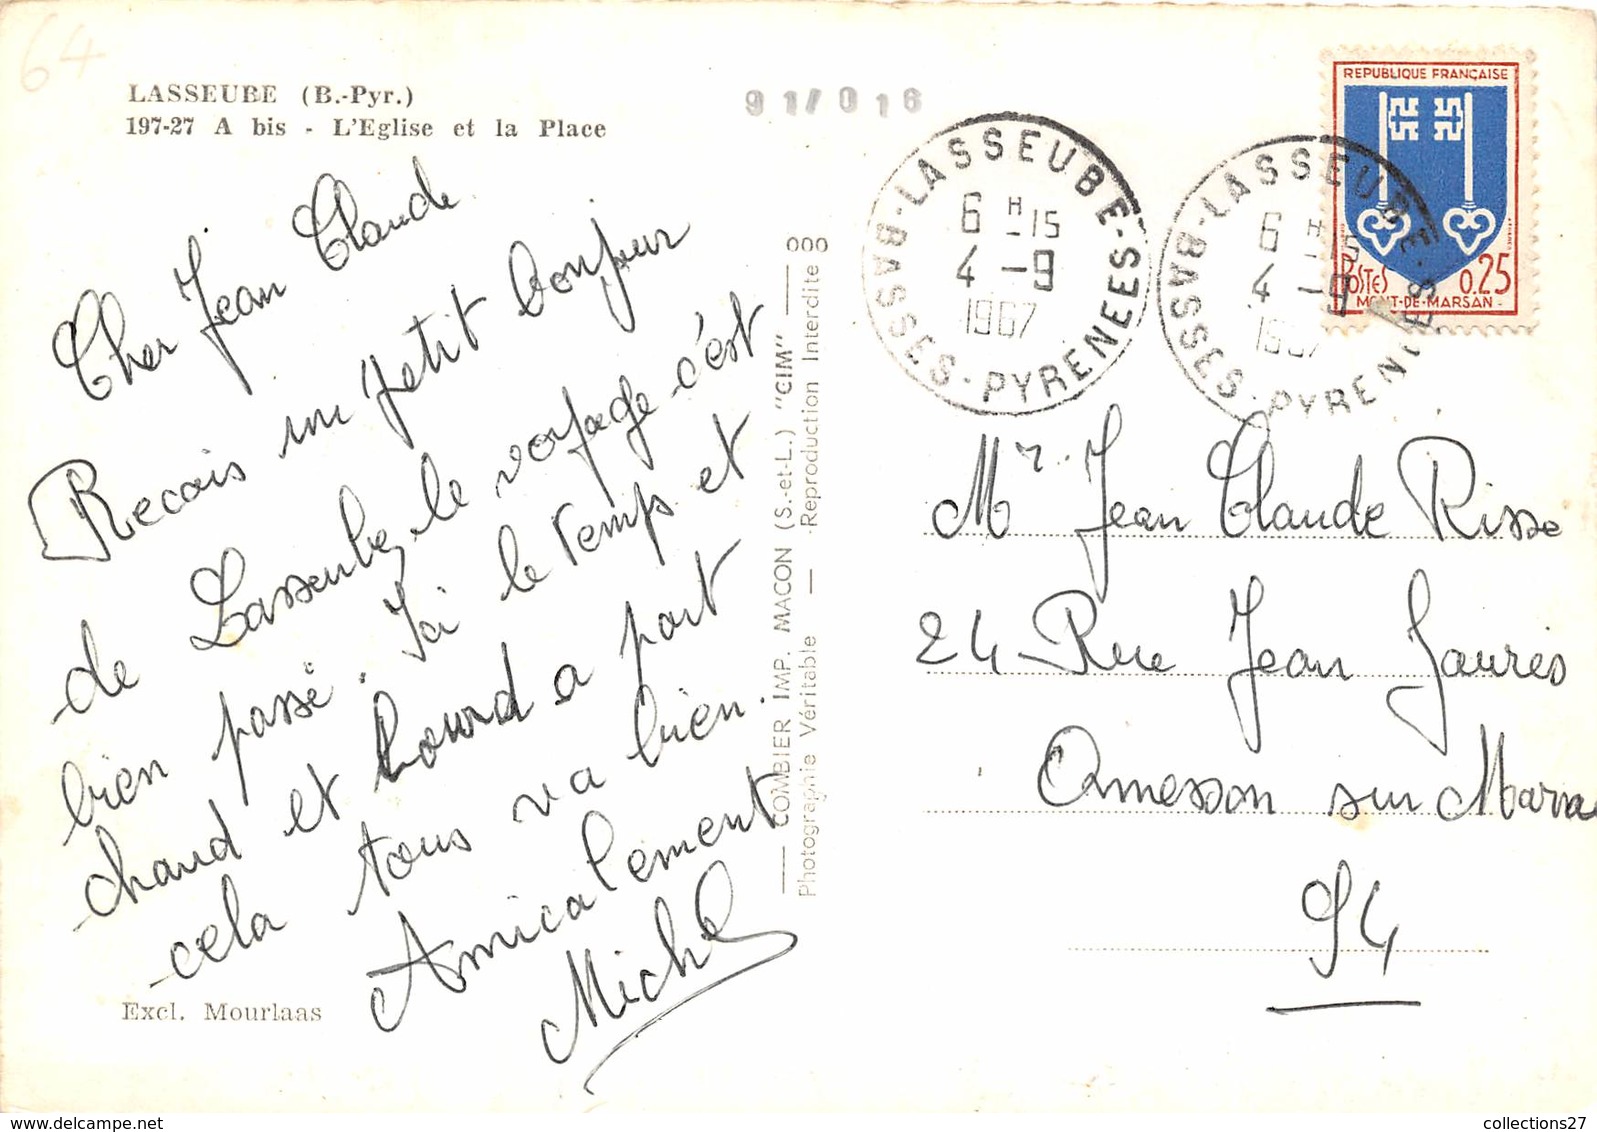 64
LASSEUBE (B.-Pyr.)
197-27 A bis - L'Eglise et la Place
91/016
Cher Jean Claude
Recois un petit bonjour
de Lasseube, le voyage c'est
bien passé. Ici le temps et
chaud et lourd a part
cela tous va bien.
Amicalement
Michel
Excl. Mourlaas
COMBIER IMP. MACON (S.-et-L.) "CIM"
Photographie Véritable — Reproduction Interdite
000
LASSEUBE - BASSES-PYRENEES
6 H 15
4 - 9
1967
LASSEUBE - BASSES-PYRENEES
6 H 15
4 - 9
1967
REPUBLIQUE FRANÇAISE
POSTES 0,25
MONT-DE-MARSAN
Mr. Jean Claude Risse
24 Rue Jean Jaurès
Ormesson sur Marne
94
collections27